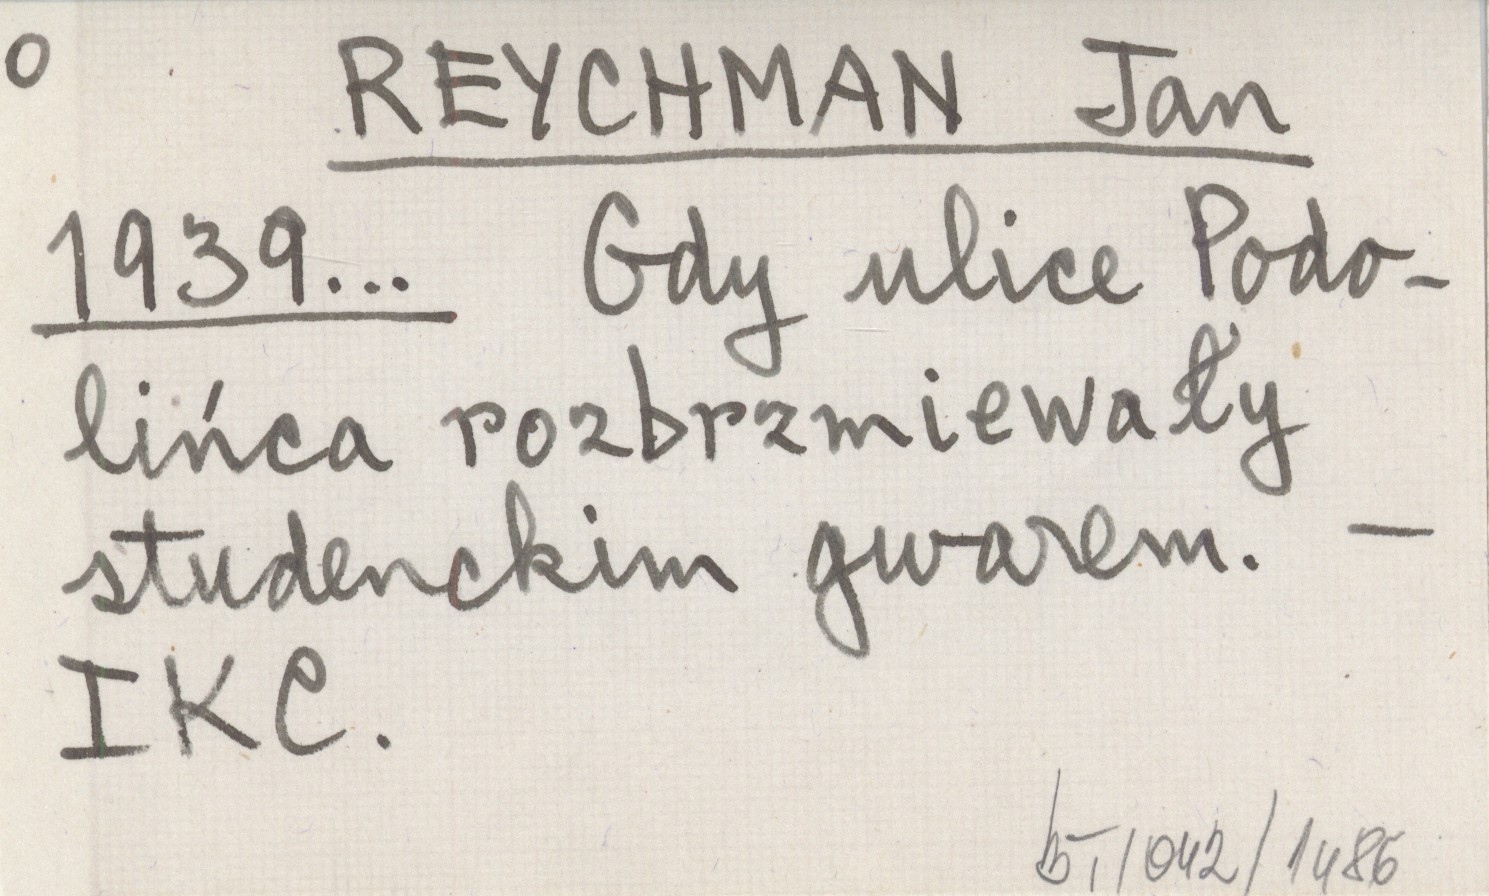 O
REYCHMAN Jan
1939... Gdy ulice Podo-
lińca rozbrzmiewały
studenckim gwarem. —
IKC.
/042/1486